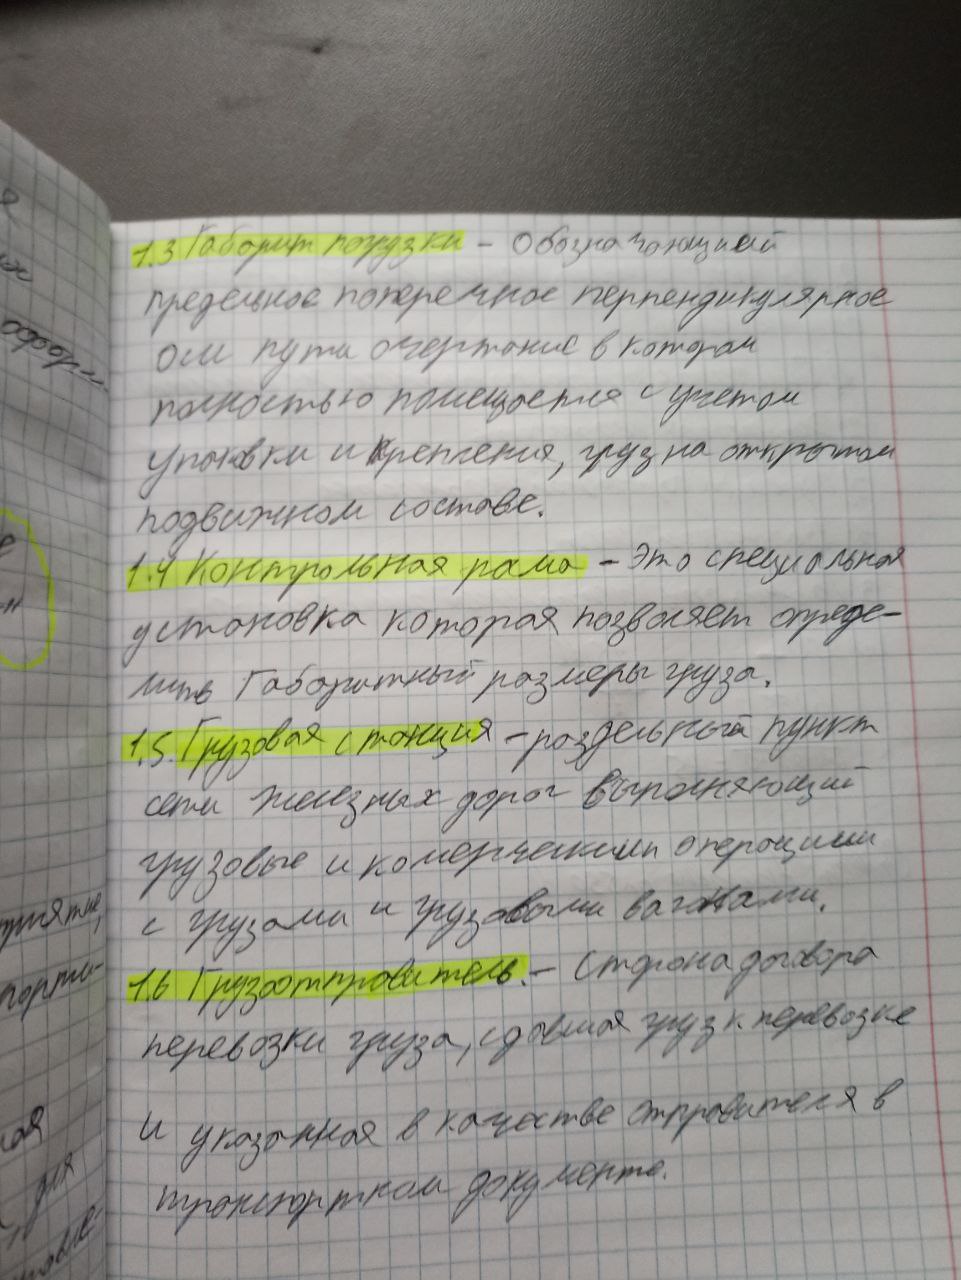 я
оформ
1.3 Габарит погрузки – Обозначающий
предельное поперечное перпендикулярное
ом пути очертание в котором
полностью помещается с учетом
упаковки и крепления, груз на открытом
подвижном составе.
1.4 Контрольная рама – Это специальная
установка которая позволяет опреде-
лить Габаритный размеры груза.
1.5. Грузовая станция – раздельный пункт
сети железных дорог выполняющий
грузовые и комерческими операциями
с грузами и грузовыми вагонами.
1.6 Грузоотправитель. – Сторона договора
перевозки груза, сдавшая груз к перевозке
и указанная в качестве отправителя в
транспортном документе.
для